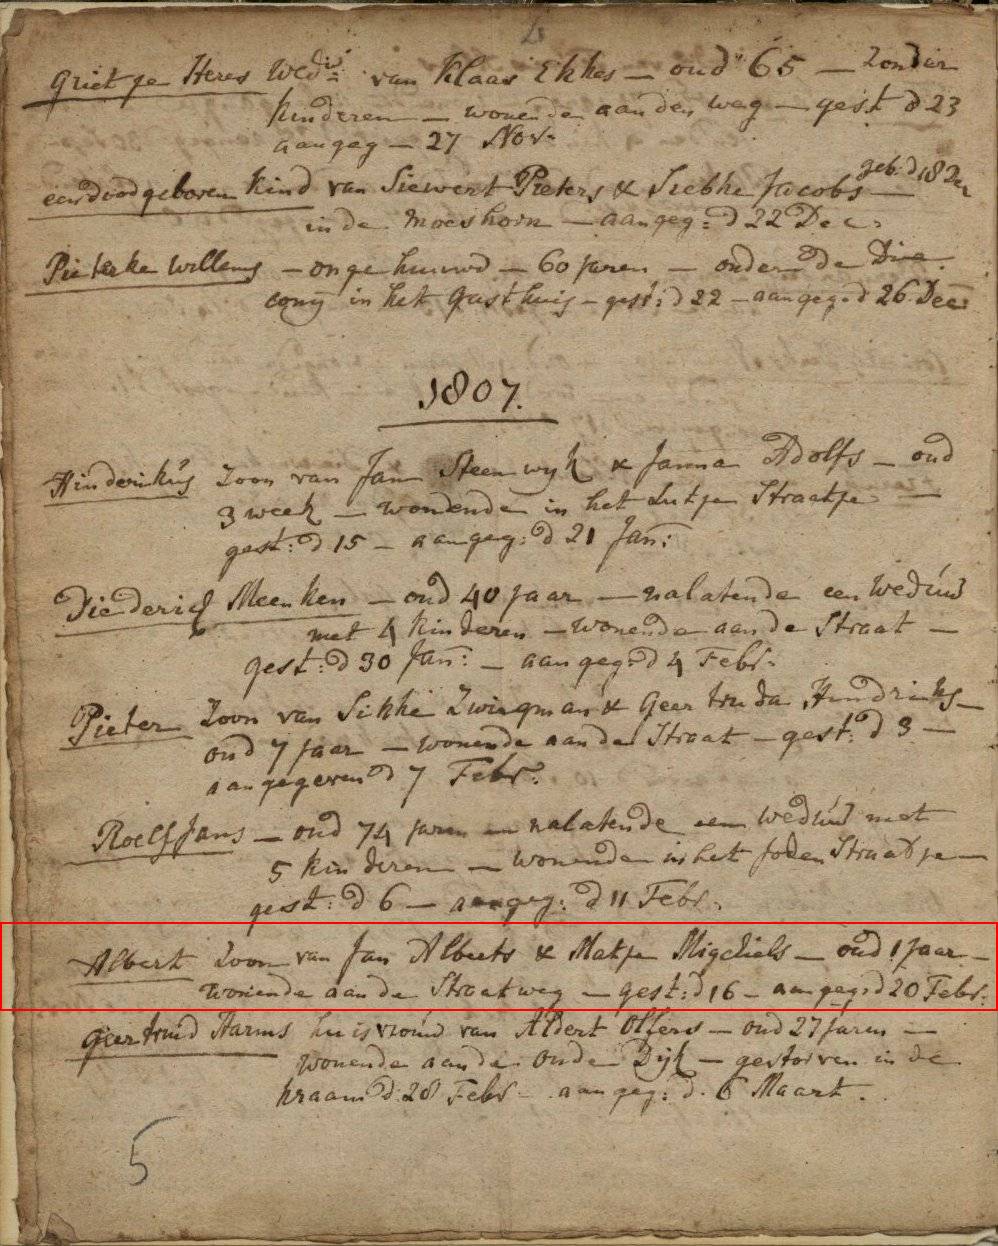 Grietje Heres Wedw: van Klaas Ekkes - oud 65 - zonder
kinderen - wonende aan den weg - gest d 23
aangeg - 27 Nov:
een doodgeboren kind van Siewert Pieters & Siebke Jacobs - geb: d 18 Dec
in de Moeshorn - aangeg: d 22 Dec:
Pieterke Willems - ongehuuwd - 60 jaren - onder de Dia-
conij in het Gasthuis - gest: d 22 - aangeg: d 26 Dec:
1807.
Hinderikus Zoon van Jan Steenwyk & Janna Adolfs - oud
3 week - wonende in het Lutje Straatje -
gest: d 15 - aangeg: d 21 Jan:
Diederich Meenken - oud 40 jaar - nalatende een Weduw
met 4 kinderen - wonende aan de Straat -
gest: d 30 Jan: - aangeg: d 4 Febr.
Pieter Zoon van Sikke Zwiegman & Geertruda Hendriks -
oud 7 jaar - wonende aan de Straat - gest: d 3 -
aangegeven d 7 Febr.
Roelf Jans - oud 74 jaren - nalatende een weduw met
5 kinderen - wonende in het Joden Straatje -
gest: d 6 - aangeg: d 11 Febr.
Albert Zoon van Jan Alberts & Matje Migchiels - oud 1 Jaar -
wonende aan de Straatweg - gest: d 16 - aangeg: d 20 Febr:
Geertruid Harms huisvrouw van Aldert Olfers - oud 27 jaren -
wonende aan de oude Dijk - gestorven in de
kraam d: 28 Febr - aangeg: d. 6 Maart.
5